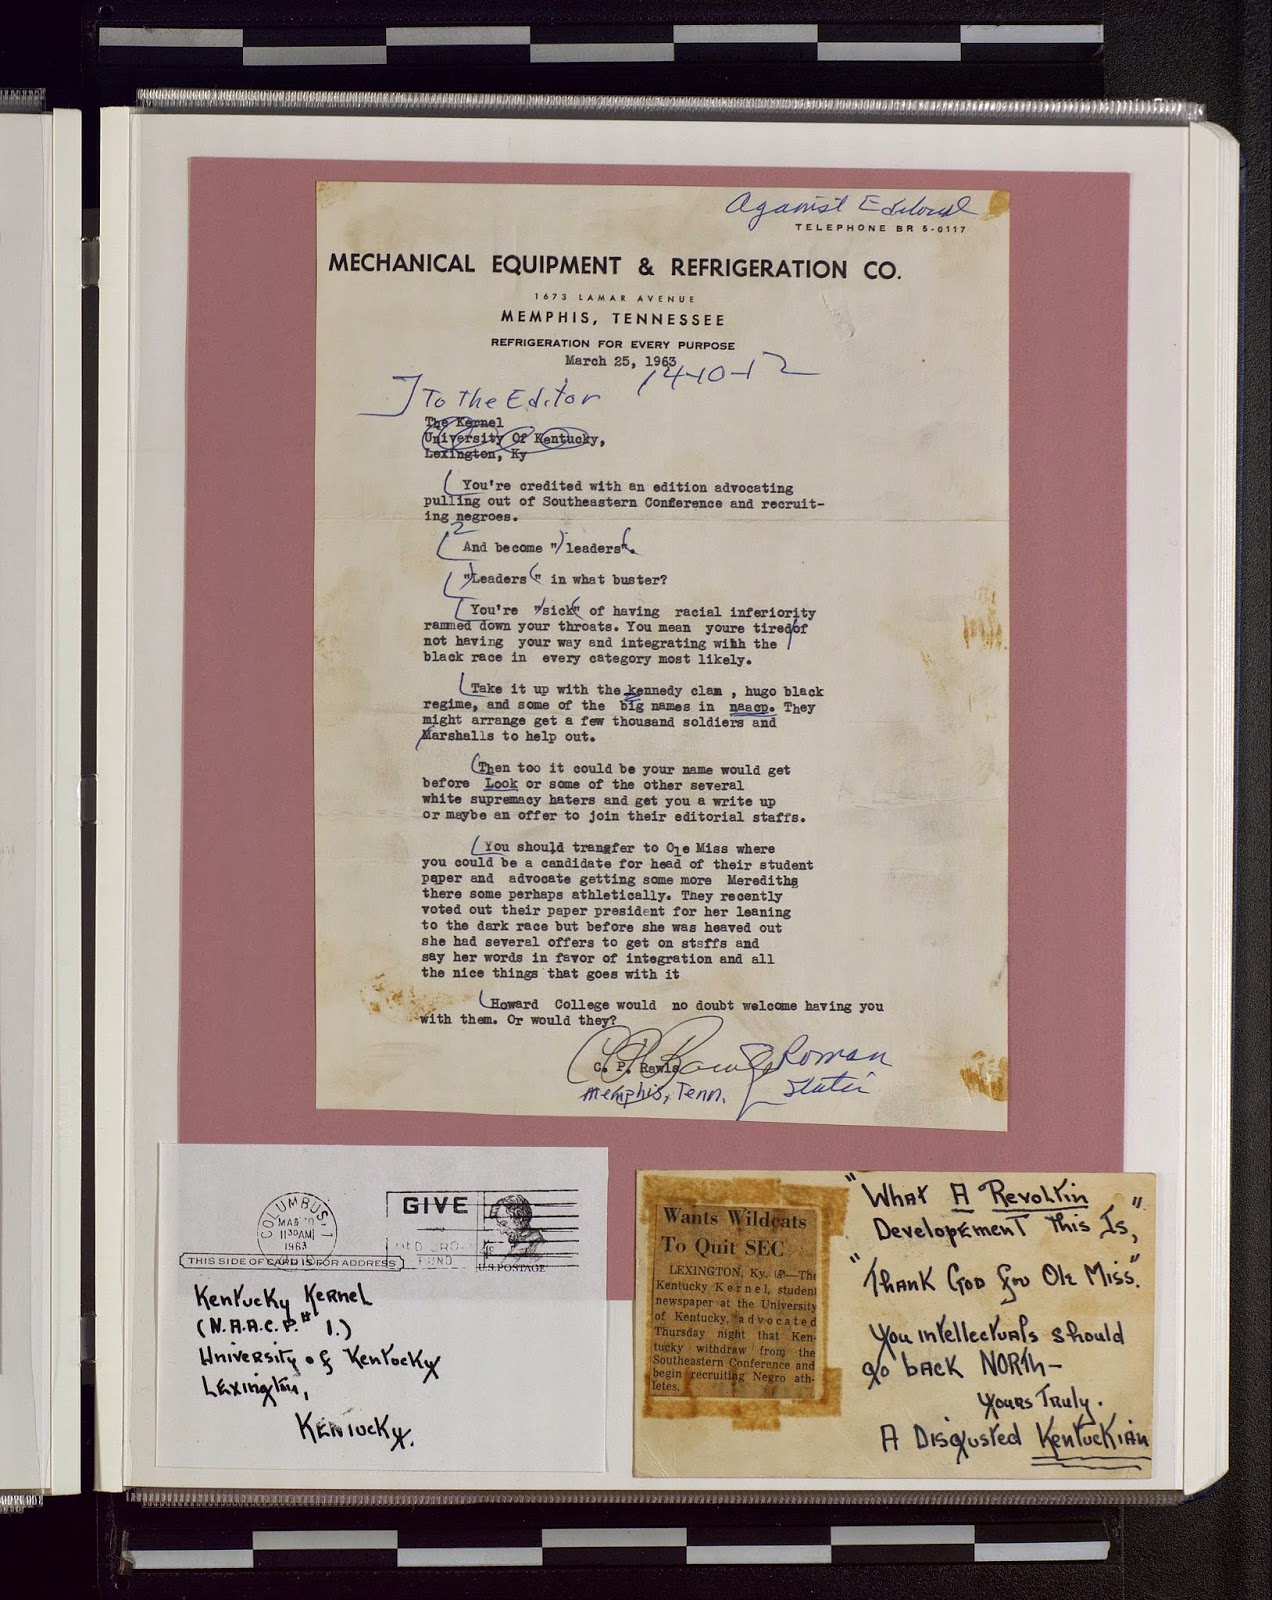 Against Editorial
TELEPHONE BR 5-0117
MECHANICAL EQUIPMENT & REFRIGERATION CO.
1673 LAMAR AVENUE
MEMPHIS, TENNESSEE
REFRIGERATION FOR EVERY PURPOSE
March 25, 1963
14-10-12
To The Editor
The Kernel
University Of Kentucky,
Lexington, Ky
You're credited with an edition advocating
pulling out of Southeastern Conference and recruit-
ing negroes.
2
And become "leaders".
"Leaders" in what buster?
You're "sick" of having racial inferiority
rammed down your throats. You mean youre tiredof
not having your way and integrating with the
black race in every category most likely.
Take it up with the kennedy clam , hugo black
regime, and some of the big names in naacp. They
might arrange get a few thousand soldiers and
Marshalls to help out.
Then too it could be your name would get
before Look or some of the other several
white supremacy haters and get you a write up
or maybe an offer to join their editorial staffs.
You should transfer to Ole Miss where
you could be a candidate for head of their student
paper and advocate getting some more Merediths
there some perhaps athletically. They recently
voted out their paper president for her leaning
to the dark race but before she was heaved out
she had several offers to get on staffs and
say her words in favor of integration and all
the nice things that goes with it
Howard College would no doubt welcome having you
with them. Or would they?
C. P. Rawls
C. P. Rawls
Memphis, Tenn.
Roman
COLUMBUS, 1
11 30 AM
1963
GIVE
FUND
U.S. POSTAGE
THIS SIDE OF CARD IS FOR ADDRESS
Kentucky Kernel
(N.A.A.C.P. # 1.)
University of Kentucky
Lexington,
Kentucky.
Wants Wildcats
To Quit SEC
LEXINGTON, Ky. (AP—The
Kentucky Kernel, student
newspaper at the University
of Kentucky, advocated
Thursday night that Ken-
tucky withdraw from the
Southeastern Conference and
begin recruiting Negro ath-
letes.
"What A Revoltin
Development This Is,"
"Thank God for Ole Miss."
You intellectuals should
go back NORth—
Yours Truly.
A Disgusted Kentuckian